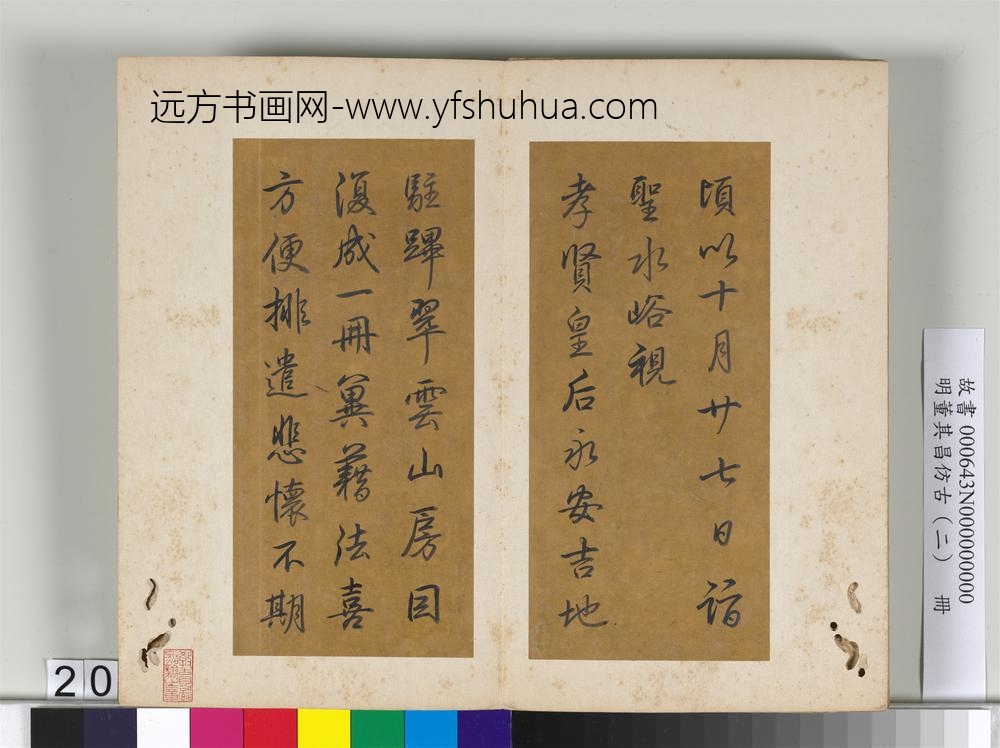 远方书画网-www.yfshuhua.com
頃以十月廿七日詣
聖水峪視
孝賢皇后永安吉地
駐蹕翠雲山房因
復成一冊冀藉法喜
方便排遣悲懷不期
故書 000643N000000000
明董其昌仿古（二） 冊
20